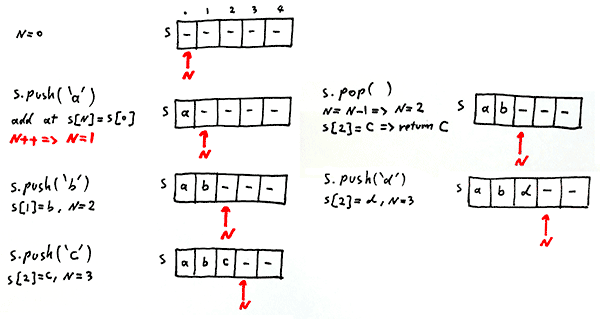 0 1 2 3 4
N=0
S - - - - -
N
S.push('a')
add at S[N]=S[0]
N++=> N=1
S a - - - -
N
S.push('b')
S[1]=b, N=2
S a b - - -
N
S.push('c')
S[2]=c, N=3
S a b c - -
N
S.pop( )
N= N-1=> N=2
S[2]=C => return C
S a b - - -
N
S.push('d')
S[2]=d, N=3
S a b d - -
N